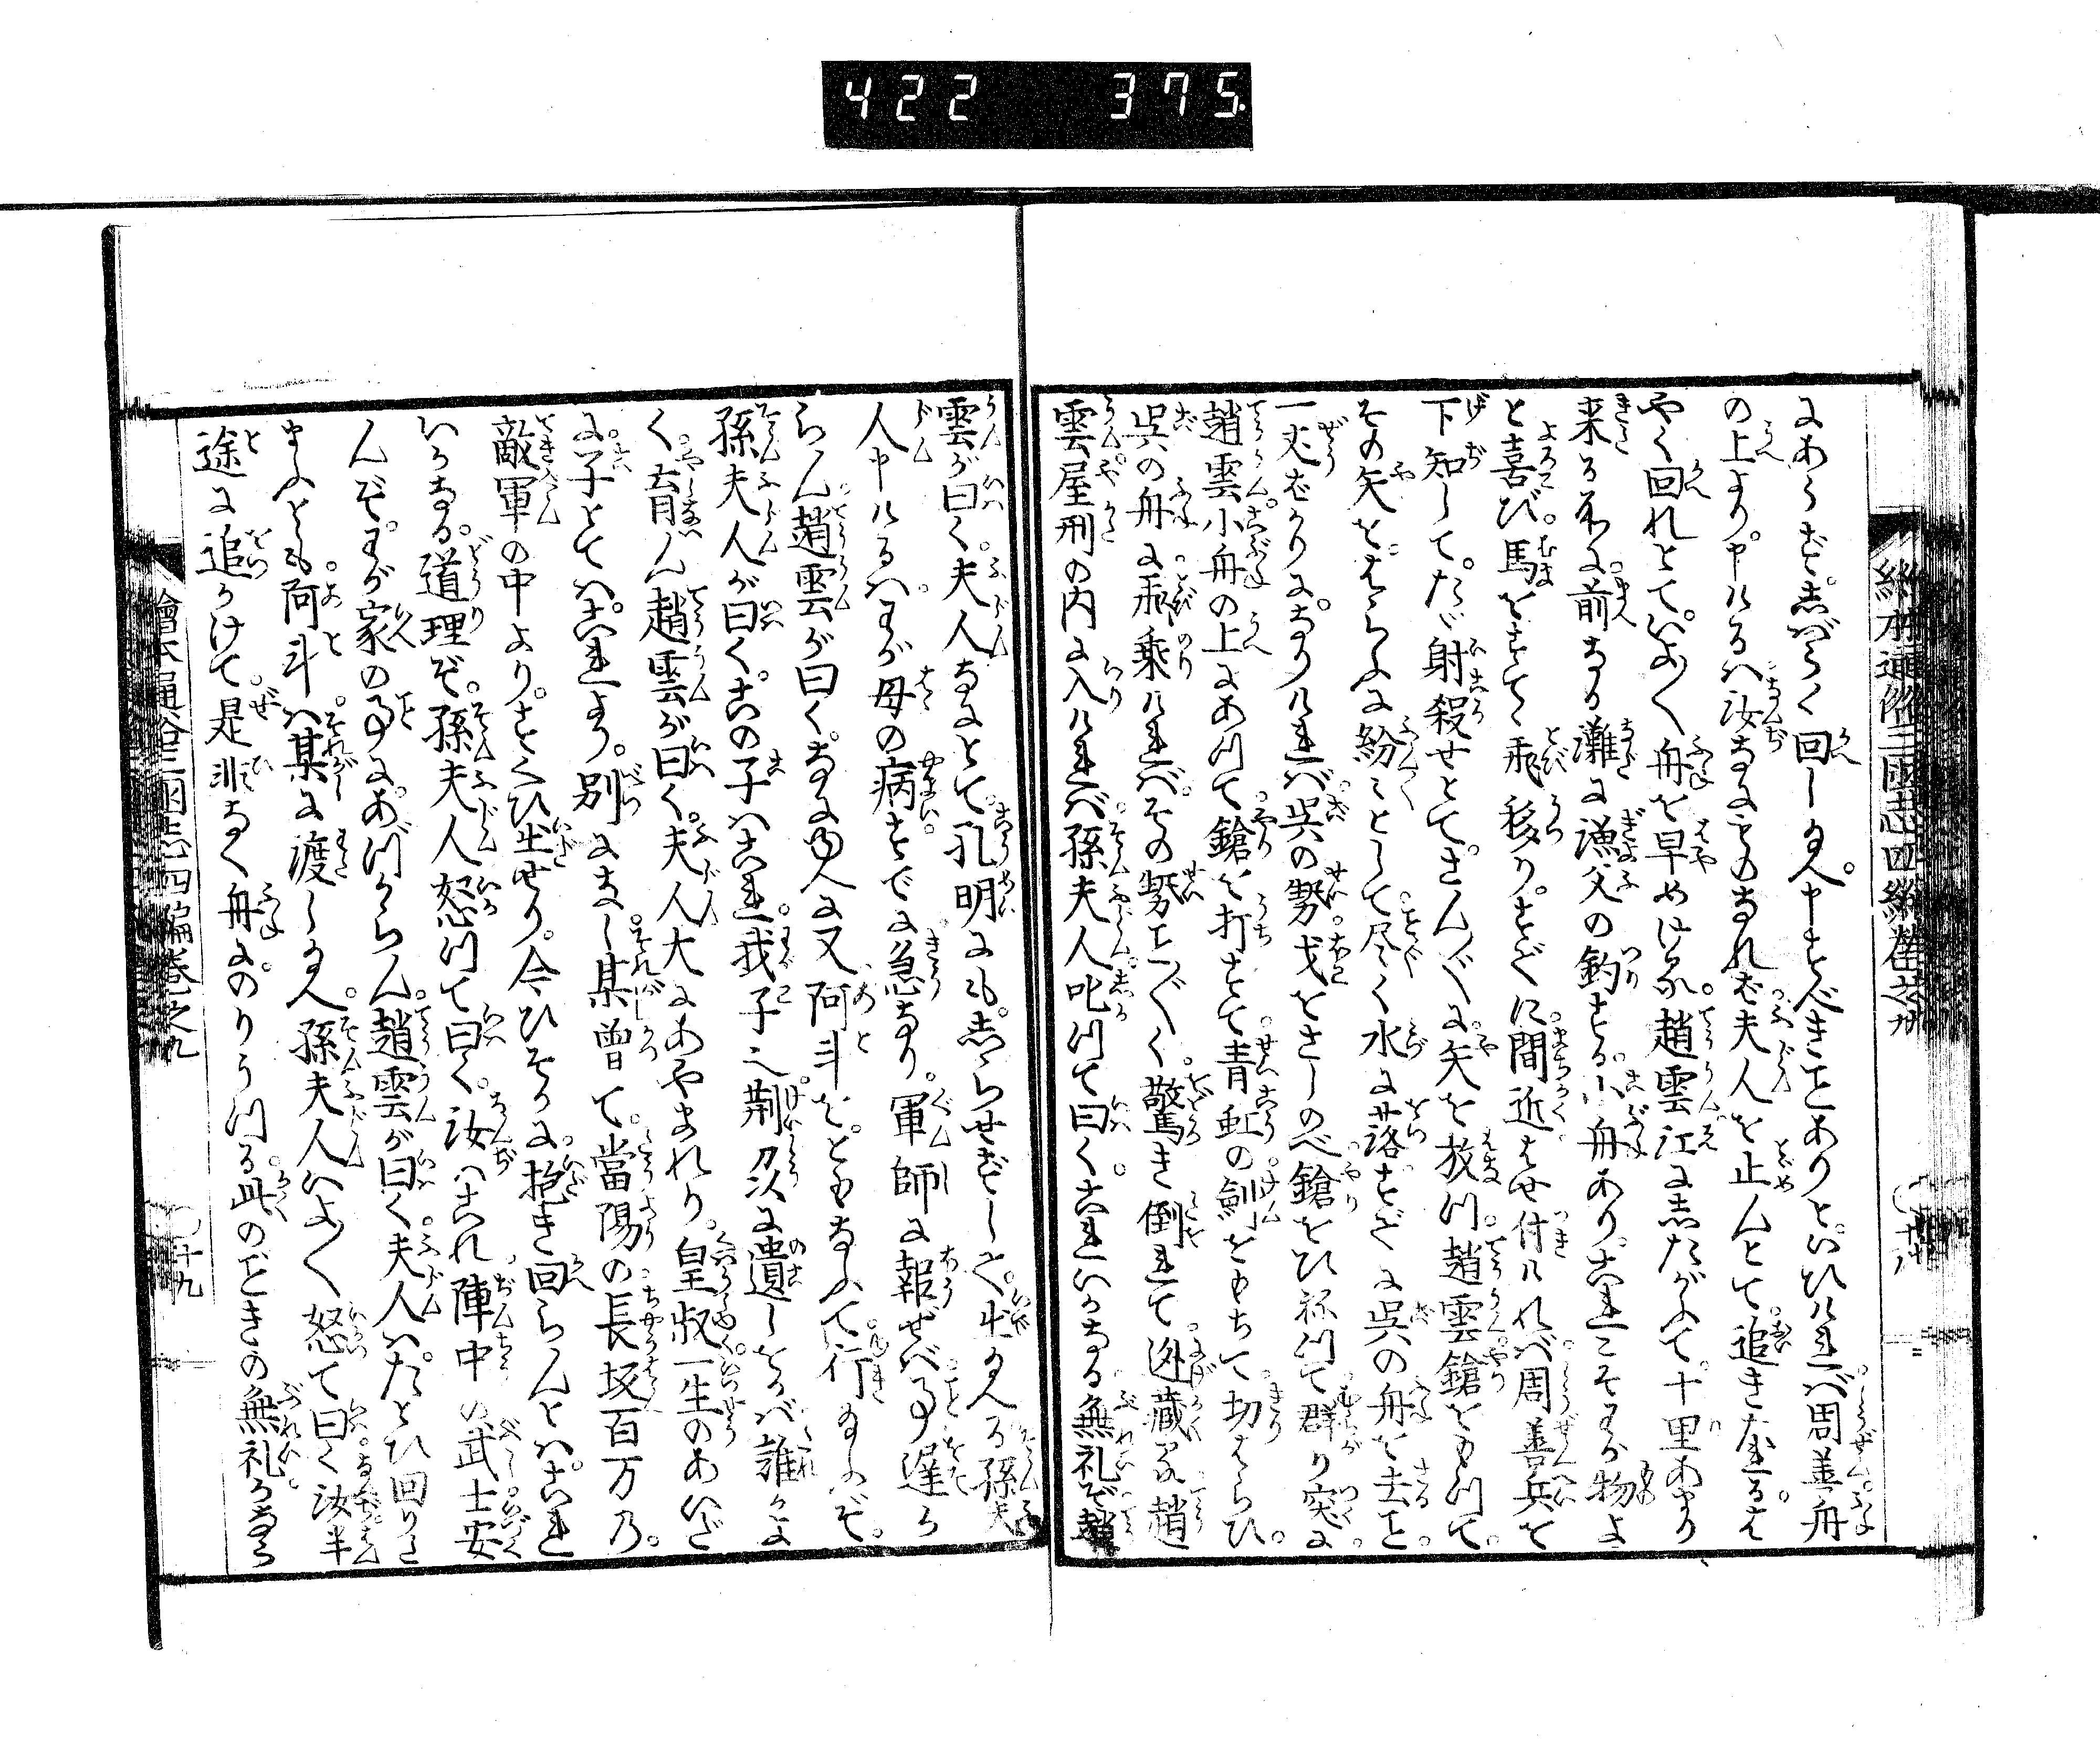 422 375
にあらず。しばらく回し給へ。申すべきことありと。いひければ周善舟
の上より。申けるは汝なにものなれば夫人を止んとて追き
やく回れとて。いよ〳〵舟を早めける。趙雲江にしたがふて。十里あまり
来る所に前なる灘に漁父の釣する小舟あり。これこそわが物よ
と喜び。馬をすてて飛移り。すぐに間近くはせ付ければ周善兵を
下知して。たゞ射殺せとて。さん〴〵に矢を放つ。趙雲鎗をもつて。
その矢をはらふに紛々として尽く水に落。すでに呉の舟を去こと。
一丈ばかりに。なりければ。呉の勢戈をさしのべ鎗をひねつて群り突に。
趙雲小舟の上にあつて鎗を打すて青虹の劍をもちて切はらひ。
呉の舟に飛乗ければ。その勢こと〴〵く。驚き倒れて逃蔵る。趙
雲屋形の内に入ければ。孫夫人叱つて曰く。これいかなる無礼ぞ趙
雲が曰く。夫人なにとて。孔明にも。しらせずして。出給へる孫夫
人申けるは。わが母の病すでに急なり。軍師に報ぜば事遅か
らん趙雲が曰く。なにゆへに又阿斗を。ともなふて行給ふぞ。
孫夫人が曰く。この子はこれ我子也荊州に遺しをかば誰かよ
く育ん趙雲が曰く。夫人大にあやまれり。皇叔一生のあいだ
に子とてはこれより。別になし某曽て。當陽の長坂百万の
敵軍の中より。すくひ出せり。今ひそかに抱き回らんとはこれ
いかなる。道理ぞ。孫夫人怒つて曰く。汝はこれ陣中の武士安
んぞ。わが家の事にあづからん。趙雲が曰く。夫人はたとひ回りた
まふとも。阿斗は某に渡し給へ。孫夫人いよ〳〵怒て曰く汝半
途に追かけて。是非なく舟にのりうつる。此のごときの無礼かなら
繪本通俗三國志四編巻之九
〇十九